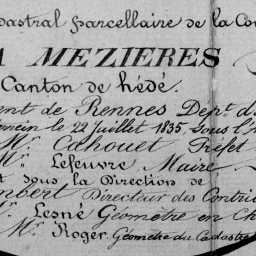 adastral parcellaire de la Co
A MEZIERES
Canton de hédé.
ent de Rennes Dept d
le 22 juillet 1835. Sous l
Mr. Cahouet Préfet
Mr. Lefeuvre Maire
t sous la Direction de
mbert Directeur des Contri
r. Lesné Géometre en Ch
Mr. Roger. Géometre du Cadastre